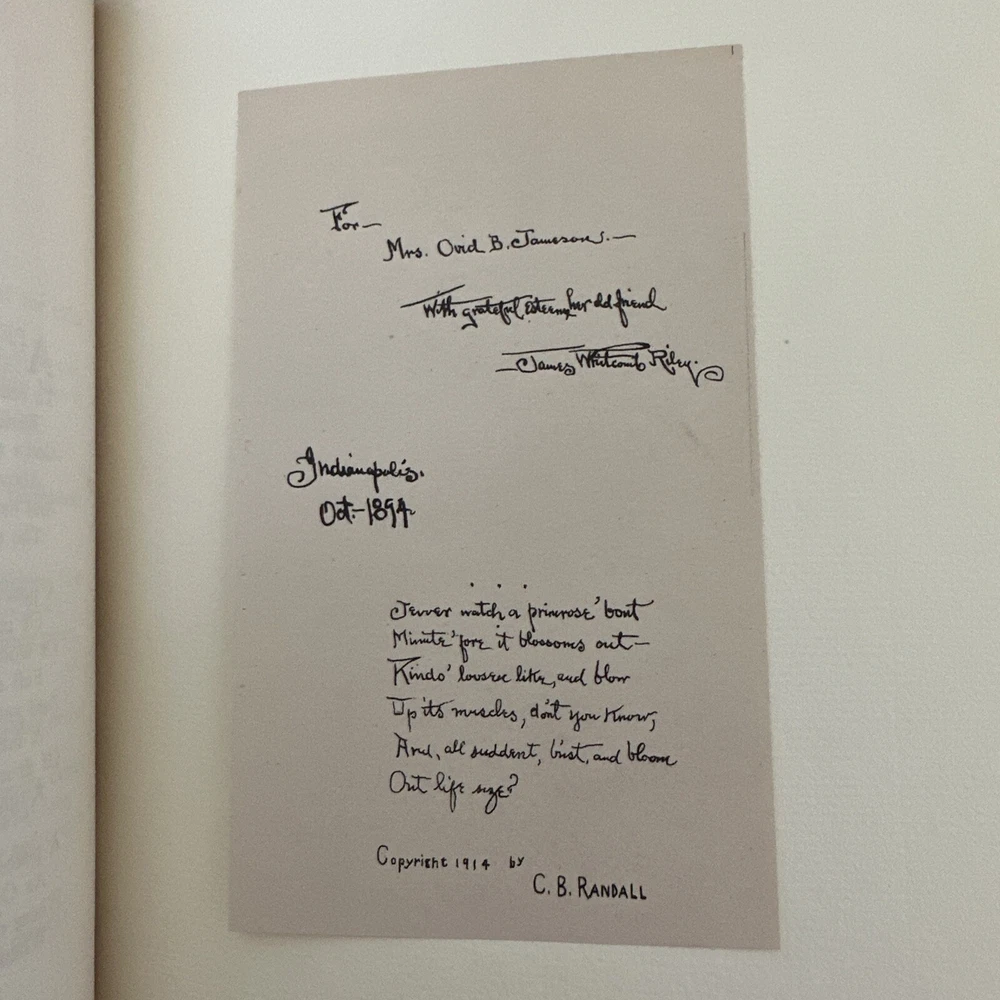 For—
Mrs. Ovid B. Jameson.—
With grateful esteem, her old friend
—James Whitcomb Riley.
Indianapolis.
Oct.—1894.
. . .
Jevver watch a primrose 'bout
Minute 'fore it blossoms out—
Kindo' loosen like, and blow
Up its muscles, don't you know,
And, all suddent, bu'st, and bloom
Out life size?
Copyright 1914 by
C. B. RANDALL